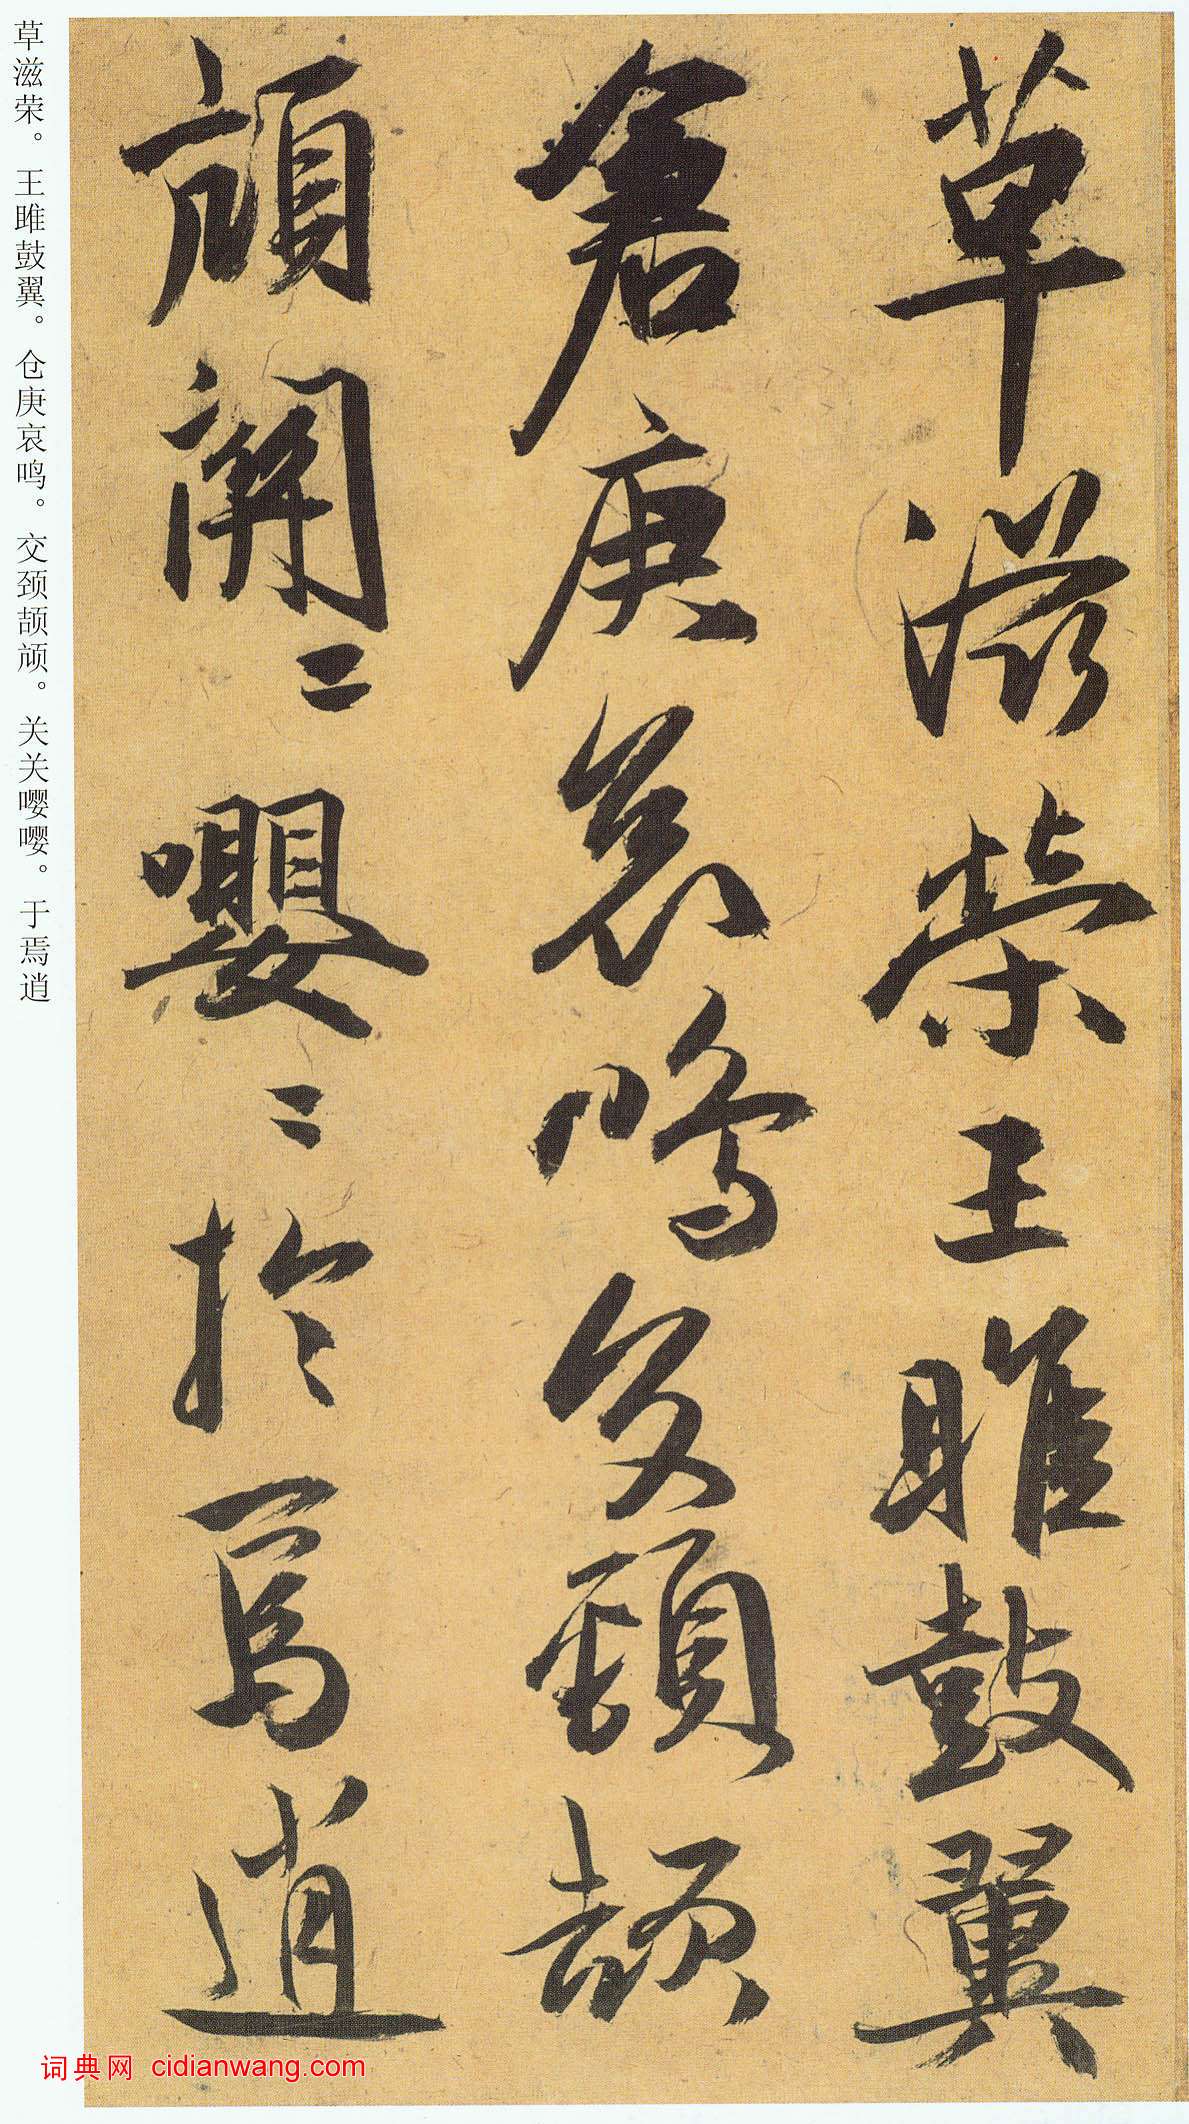 草滋榮王雎鼓翼
倉庚哀鳴交頸頡
頏關〻嚶〻於焉逍
草滋荣。王雎鼓翼。仓庚哀鸣。交颈颉颃。关关嘤嘤。于焉逍
词典网 cidianwang.com